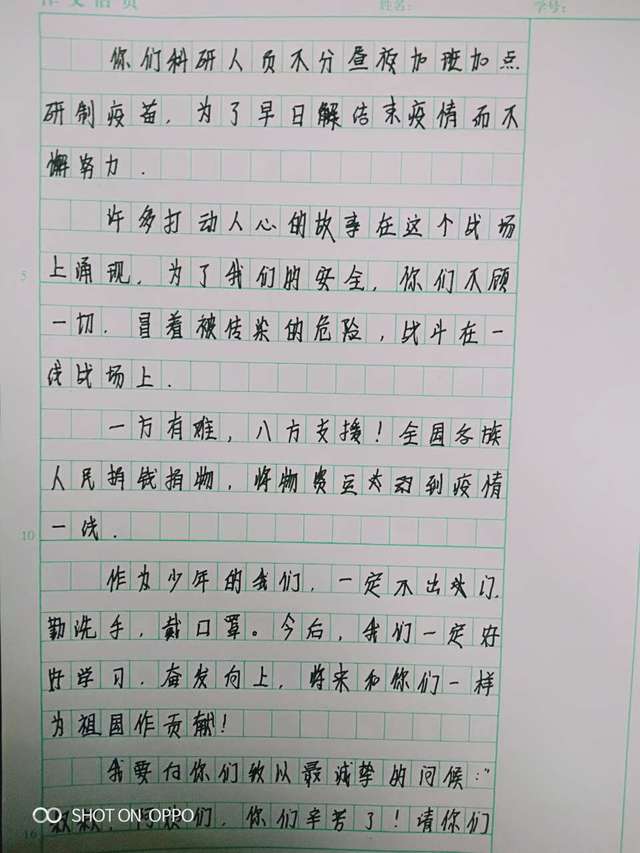 作文活页 姓名: 学号:
你们科研人员不分昼夜加班加点
研制疫苗，为了早日解结束疫情而不
懈努力.
许多打动人心的故事在这个战场
5 上涌现，为了我们的安全，你们不顾
一切.冒着被传染的危险，战斗在一
线战场上.
一方有难，八方支援！全国各族
人民捐钱捐物，将物资 到疫情
10 一线.
作为少年的我们，一定不出家门,
勤洗手，戴口罩。今后，我们一定好
好学习.奋发向上，将来和你们一样
为祖国作贡献！
我要向你们致以最诚挚的问候:“
16 叔叔，阿姨们，你们辛苦了！请你们
SHOT ON OPPO